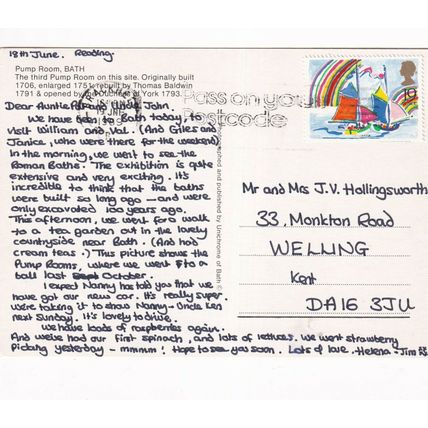 18th June. Reading.
Pump Room, BATH
The third Pump Room on this site. Originally built
1706, enlarged 1751, rebuilt by Thomas Baldwin
1791 & opened by the Duchess of York 1793.
Dear Auntie and Uncle John,
We have been to Bath today, to
visit William and Val. (And Giles and
Janice, who were there for the weekend)
In the morning, we went to see the
Roman Baths. The exhibition is quite
extensive and very exciting. It's
incredible to think that the baths
were built so long ago - and were
only excavated 100 years ago.
This afternoon, we went for a walk
to a tea garden out in the lovely
countryside near Bath. (And had
cream teas.) This picture shows the
Pump Rooms, where we went to a
ball last Sept October.
I expect Nanny has told you that we
have got our new car. It's really super.
We're taking it to show Nanny + Uncle Ken
next Sunday. It's lovely to drive.
We have loads of raspberries again.
And we've had our first spinach, and lots of lettuces. We went strawberry
picking yesterday - mmmm! Hope to see you soon. Lots of love. Helena + Jim
and published by Unichrome of Bath ©
Pass on your
Postcode
19
Mr and Mrs J.V. Hollingsworth
33, Monkton Road
WELLING
Kent
DA16 3JU